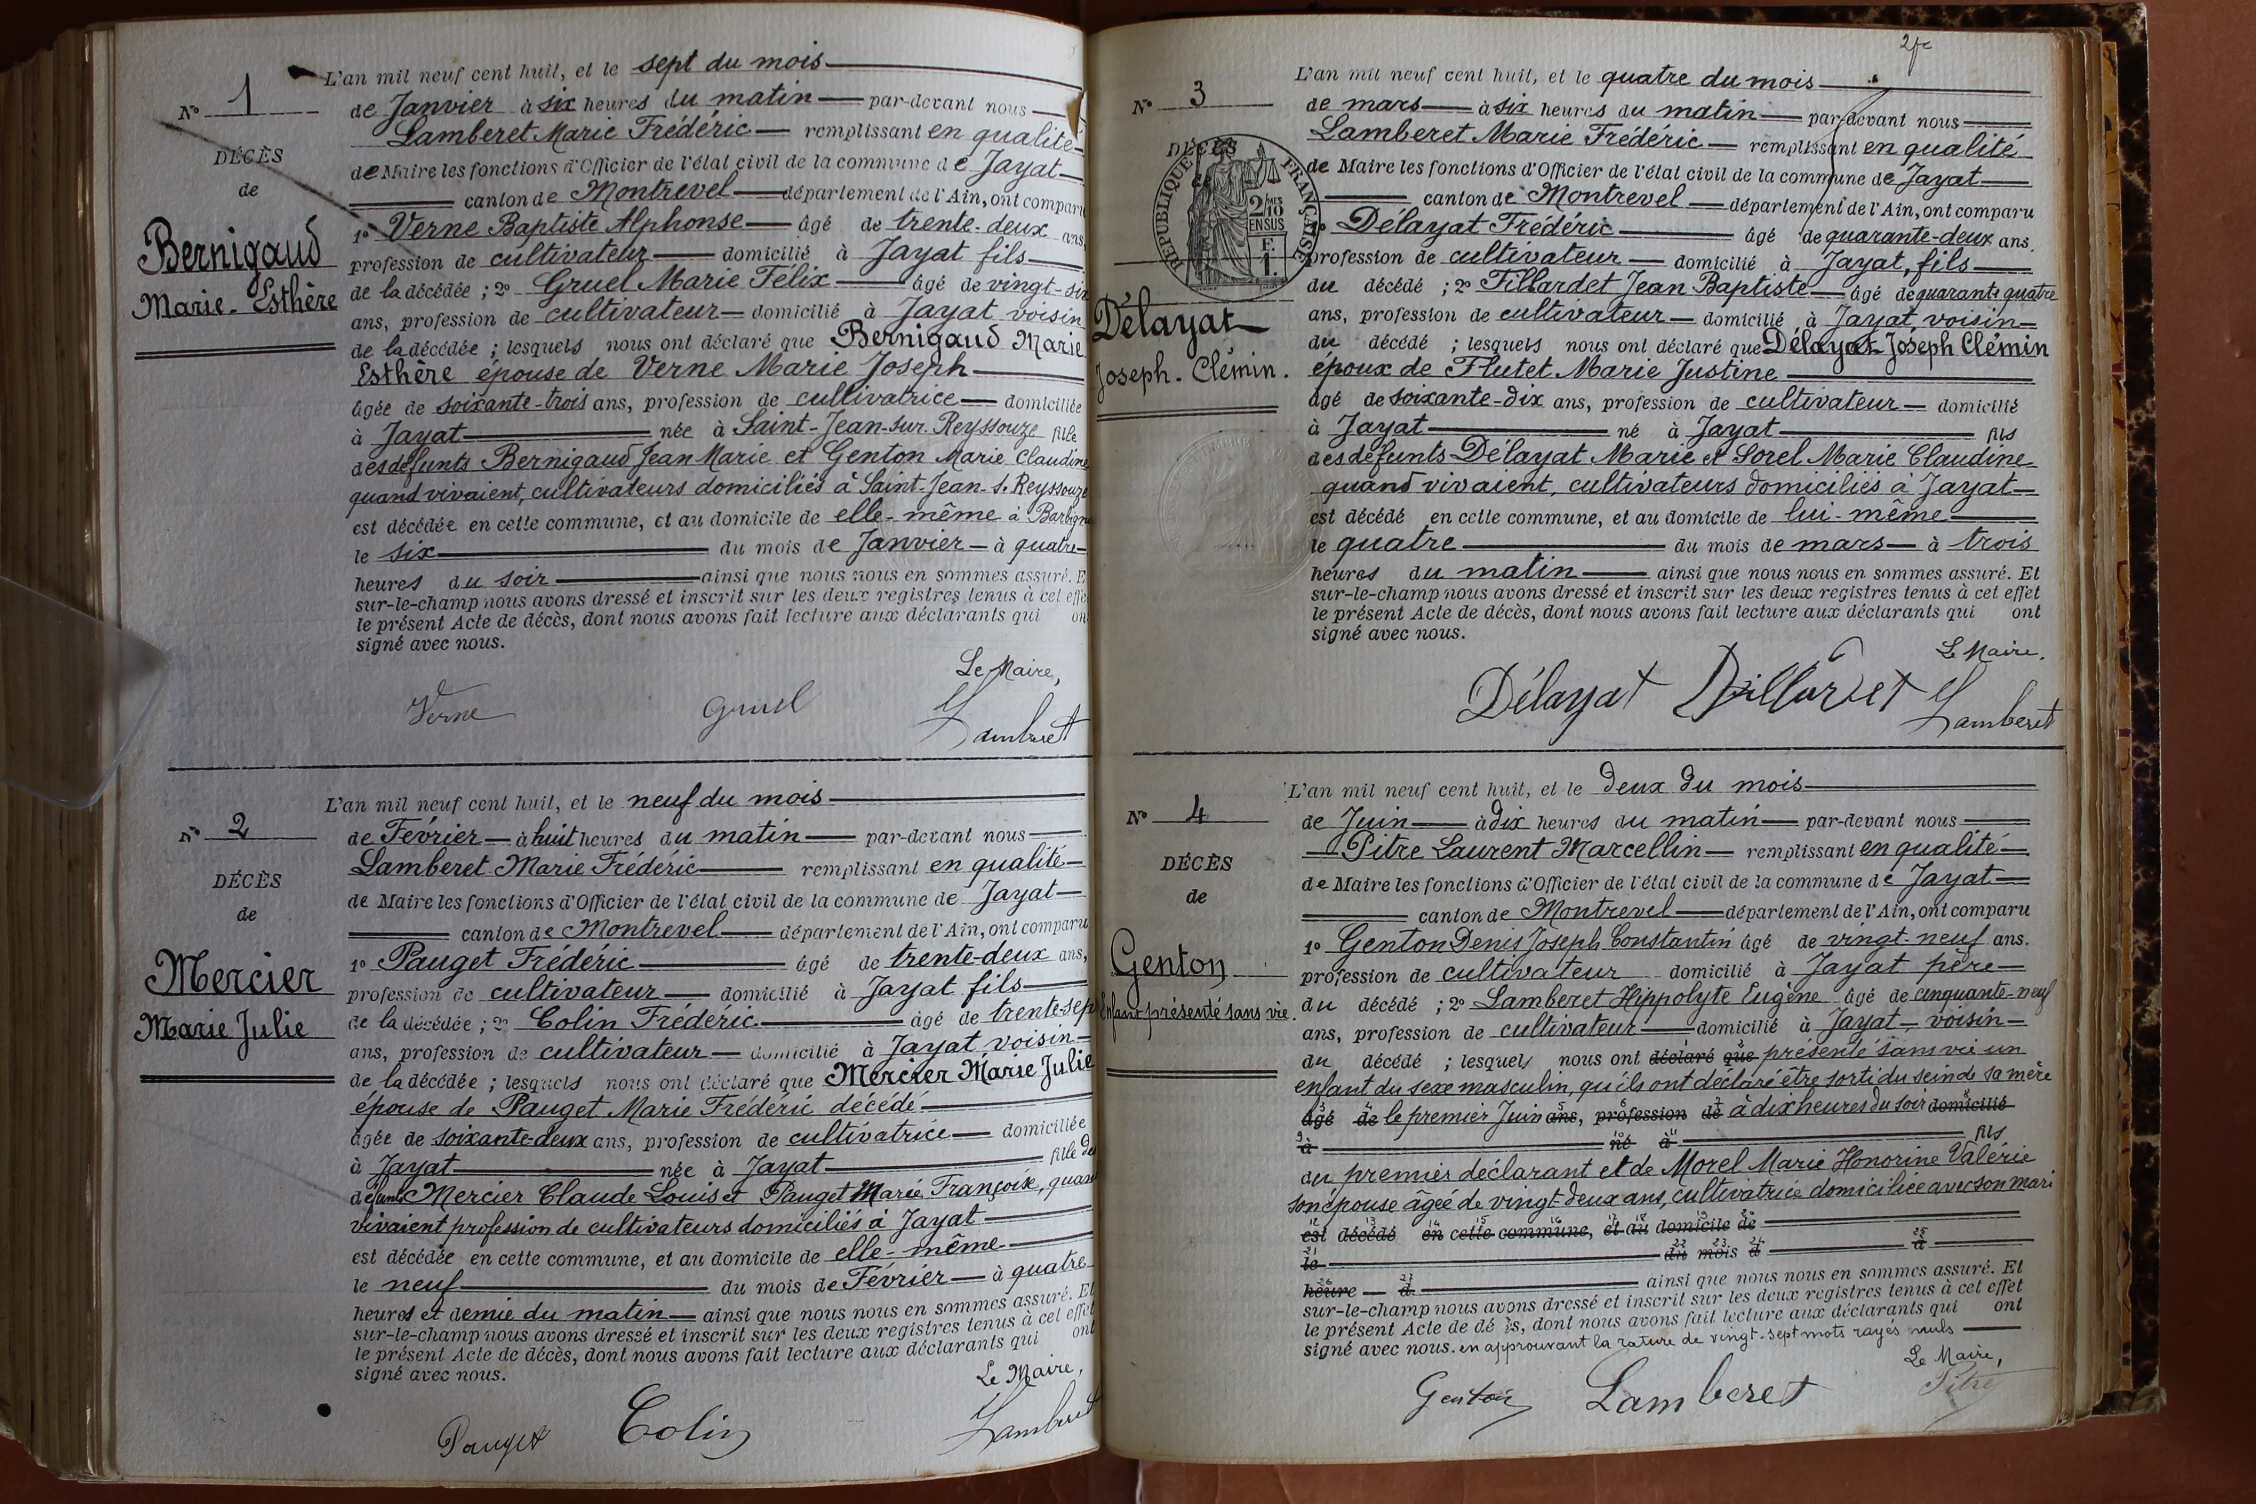 L'an mil neuf cent huit, et le sept du mois
N° 1
de Janvier à six heures du matin par-devant nous
Lamberet Marie Frédéric remplissant en qualité
DÉCÈS
de Maire les fonctions d'Officier de l'état civil de la commune de Jayat
de
canton de Montrevel département de l'Ain, ont comparu
1° Verne Baptiste Alphonse âgé de trente-deux ans,
Bernigaud
profession de cultivateur domicilié à Jayat fils
Marie-Esthère
de la décédée ; 2° Gruel Marie Félix âgé de vingt-six
ans, profession de cultivateur domicilié à Jayat voisin
de la décédée ; lesquels nous ont déclaré que Bernigaud Marie
Esthère épouse de Verne Marie Joseph
âgée de soixante-trois ans, profession de cultivatrice domiciliée
à Jayat née à Saint-Jean-sur-Reyssouze fille
des défunts Bernigaud Jean Marie et Genton Marie Claudine
quand vivaient, cultivateurs domiciliés à Saint-Jean-s. Reyssouze
est décédée en cette commune, et au domicile de elle-même à
le six du mois de Janvier à quatre
heures du soir ainsi que nous nous en sommes assuré. E
sur-le-champ nous avons dressé et inscrit sur les deux registres tenus à cet effet
le présent Acte de décès, dont nous avons fait lecture aux déclarants qui on
signé avec nous.
Le Maire,
Verne Gruel Lamberet
L'an mil neuf cent huit, et le neuf du mois
N° 2
de Février à huit heures du matin par-devant nous
Lamberet Marie Frédéric remplissant en qualité
DÉCÈS
de Maire les fonctions d'Officier de l'état civil de la commune de Jayat
de
canton de Montrevel département de l'Ain, ont comparu
1° Pauget Frédéric âgé de trente-deux ans,
Mercier
profession de cultivateur domicilié à Jayat fils
Marie Julie
de la décédée ; 2° Colin Frédéric âgé de trente-sept
ans, profession de cultivateur domicilié à Jayat voisin
de la décédée ; lesquels nous ont déclaré que Mercier Marie Julie
épouse de Pauget Marie Frédéric décédé
âgée de soixante-deux ans, profession de cultivatrice domiciliée
à Jayat née à Jayat fille des
défunts Mercier Claude Louis et Pauget Marie Françoise, quand
vivaient profession de cultivateurs domiciliés à Jayat
est décédée en cette commune, et au domicile de elle-même
le neuf du mois de Février à quatre
heures et demie du matin ainsi que nous nous en sommes assuré. Et
sur-le-champ nous avons dressé et inscrit sur les deux registres tenus à cet effet
le présent Acte de décès, dont nous avons fait lecture aux déclarants qui ont
signé avec nous.
Le Maire,
Pauget Colin Lamberet
L'an mil neuf cent huit, et le quatre du mois
N° 3
de mars à six heures du matin par-devant nous
Lamberet Marie Frédéric remplissant en qualité
DÉCÈS
de Maire les fonctions d'Officier de l'état civil de la commune de Jayat
RÉPUBLIQUE FRANÇAISE
2/10 EN SUS
canton de Montrevel département de l'Ain, ont comparu
1° Délayat Frédéric âgé de quarante-deux ans.
profession de cultivateur domicilié à Jayat, fils
du décédé ; 2° Fillardet Jean Baptiste âgé de quarante quatre
Délayat
ans, profession de cultivateur domicilié à Jayat, voisin
Joseph-Clémin.
du décédé ; lesquels nous ont déclaré que Délayat Joseph Clémin
époux de Flutet Marie Justine
âgé de soixante-dix ans, profession de cultivateur domicilié
à Jayat né à Jayat fils
des défunts Délayat Marie et Sorel Marie Claudine
quand vivaient, cultivateurs domiciliés à Jayat
est décédé en cette commune, et au domicile de lui-même
le quatre du mois de mars à trois
heures du matin ainsi que nous nous en sommes assuré. Et
sur-le-champ nous avons dressé et inscrit sur les deux registres tenus à cet effet
le présent Acte de décès, dont nous avons fait lecture aux déclarants qui ont
signé avec nous.
Le Maire.
Délayat Fillardet Lamberet
L'an mil neuf cent huit, et le deux du mois
N° 4
de Juin à dix heures du matin par-devant nous
Pitre Laurent Marcellin remplissant en qualité
DÉCÈS
de Maire les fonctions d'Officier de l'état civil de la commune de Jayat
de
canton de Montrevel département de l'Ain, ont comparu
1° Genton Denis Joseph Constantin âgé de vingt-neuf ans.
Genton
profession de cultivateur domicilié à Jayat père
Enfant présenté sans vie.
du décédé ; 2° Lamberet Hippolyte Eugène âgé de cinquante-neuf
ans, profession de cultivateur domicilié à Jayat, voisin
du décédé ; lesquels nous ont déclaré que présenté sans vie un
enfant du sexe masculin, qu'ils ont déclaré être sorti du sein de sa mère
âgé de le premier Juin ans, profession de à dix heures du soir domicilié
à né à fils
du premier déclarant et de Morel Marie Honorine Valérie
son épouse âgée de vingt-deux ans, cultivatrice domiciliée avec son mari
est décédé en cette commune, et au domicile de
le du mois d à
heure d ainsi que nous nous en sommes assuré. Et
sur-le-champ nous avons dressé et inscrit sur les deux registres tenus à cet effet
le présent Acte de décès, dont nous avons fait lecture aux déclarants qui ont
signé avec nous. en approuvant la rature de vingt-sept mots rayés nuls
Le Maire,
Genton Lamberet Pitre